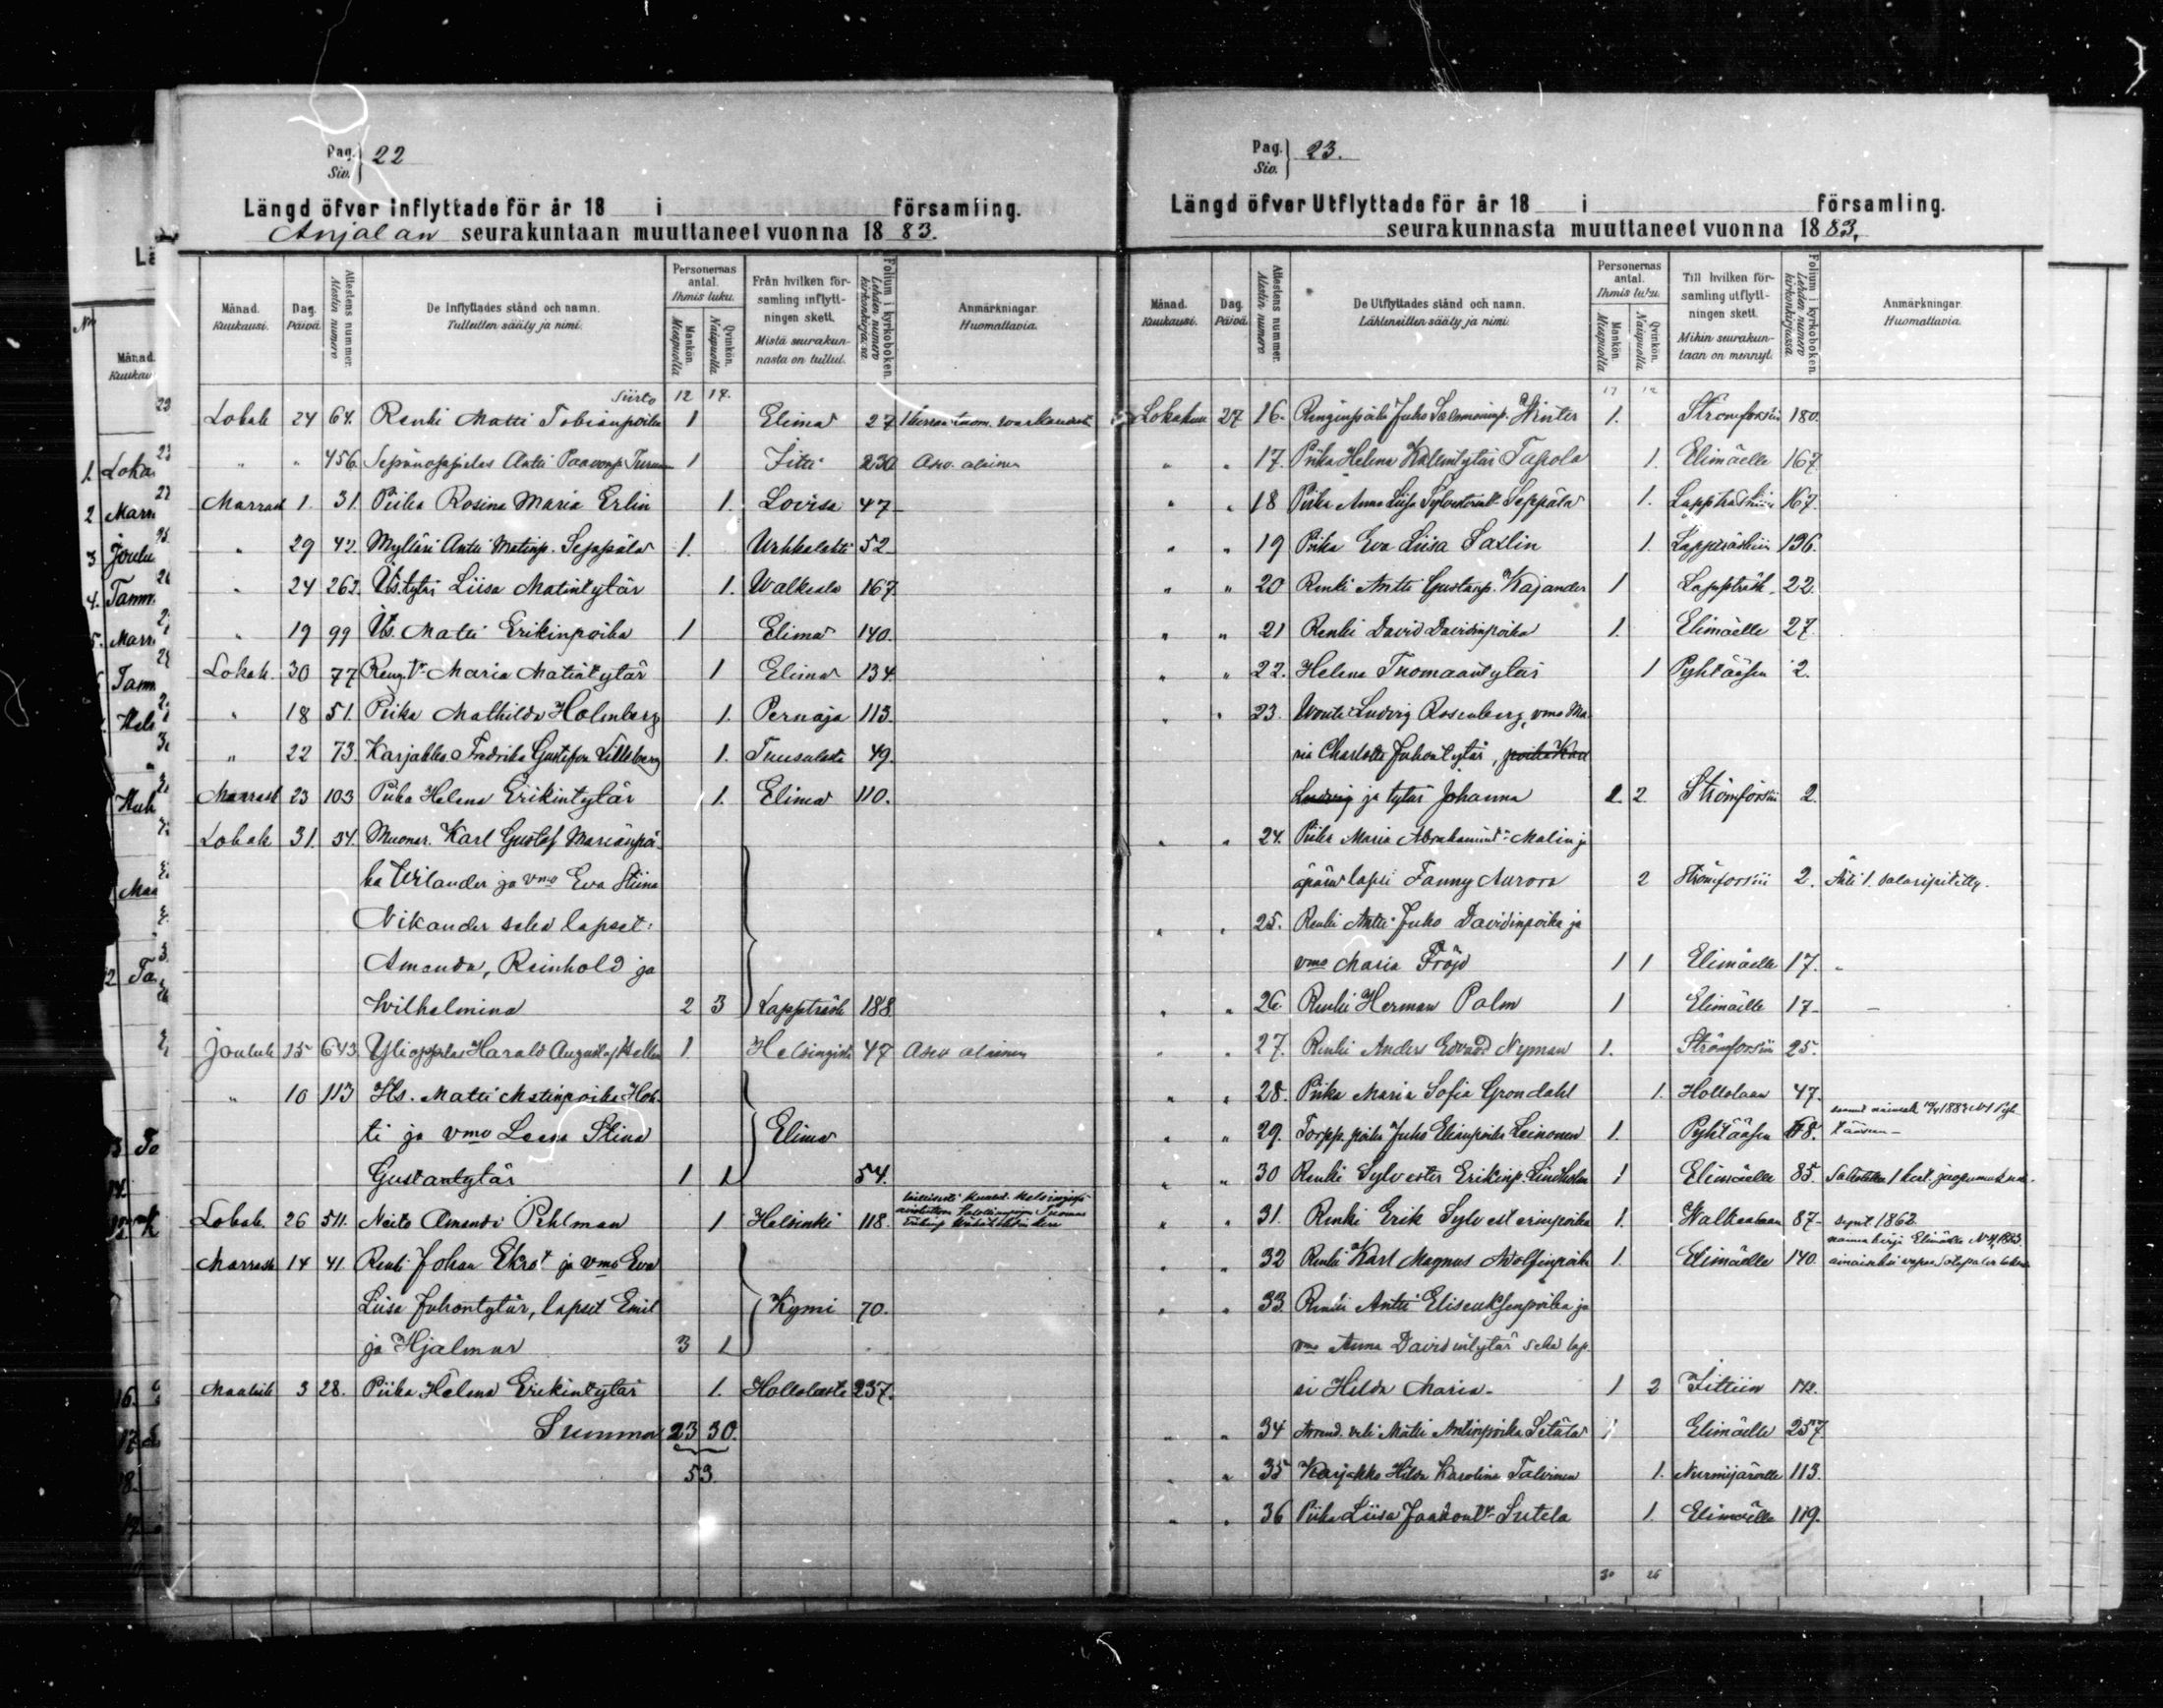 Pag. Siv. 22
Längd öfver Inflyttade för år 18 i församling.
Anjalan seurakuntaan muuttaneet vuonna 1883.
Månad. Kuukausi.
Dag. Päivä.
Attestens nummer. Atestin numero
De Inflyttades stånd och namn. Tulleitten sääty ja nimi.
Personernas antal. Ihmis luku.
Mankön. Miespuolia
Qvinkön. Naispuolia
Från hvilken församling inflyttningen skett. Mistä seurakunnasta on tullut.
Folium i kyrkoboken. Lehden numero kirkonkirjassa
Anmärkningar Huomattavia.
Siirto 12 17.
Lokak 24 64. Renki Matti Tobianpoika 1 Elimä 27
" " 456. Antti Paavonp. 1 Iitti 230 alainen
Marrask 1. 31. Piika Rosina Maria Erlin 1. Lovisa 47
" 29 42. Mylläri Antti Matinp. Seppälä 1. 52.
" 24 262. Its. tytär Liisa Matintytär 1. Walkeala 167
" 19 99 Its. Matti Erikinpoika 1 Elimä 140.
Lokak. 30 77 Maria Matintytär 1 Elimä 134.
" 18 51. Piika Mathilda Holmberg 1. Pernaja 113.
" 22 73. Karjakko Fredrika Lilleberg 1. Tuusulasta 49.
Marrask 23 103 Piika Helena Erikintytär 1. Elimä 110.
Lokak 31. 54. Muonar. Karl Gustaf Marianpoi-
ka Wilander ja vmo Eva Stiina
Nikander sekä lapset:
Amanda, Reinhold ja
Wilhelmina 2 3 Lappträsk 188.
Jouluk 15 643 Ylioppilas Harald August Hellen 1. Helsingistä 47 alainen
" 10 113 Its. Matti Matinpoika Hok-
ti ja vmo Leena Stina Elimä
Gustantytär 1 1 54.
Lokak. 26 511. Neito Amanda Pehlman 1 Helsinki 118.
Marrask 14 41. Renki Johan Ekrot ja vmo Eva
Liisa Juhontytär, lapset Emil Kymi 70.
ja Hjalmar 3 1
Maalisk 3 28. Piika Helena Erikintytär 1. Hollolasta 237.
Summa 23 30.
53.
Pag. Siv. 23.
Längd öfver Utflyttade för år 18 i församling.
seurakunnasta muuttaneet vuonna 1883.
Månad. Kuukausi.
Dag. Päivä.
Attestens nummer. Atestin numero
De Utflyttades stånd och namn. Lähteneitten sääty ja nimi.
Personernas antal. Ihmis luku.
Mankön. Miespuolia
Qvinkön. Naispuolia
Till hvilken församling utflyttningen skett. Mihin seurakuntaan on mennyt.
Folium i kyrkoboken. Lehden numero kirkonkirjassa.
Anmärkningar Huomattavia.
17 12
Lokakuu 27 16. Renginpoika Juho Salomoninp. Winter 1. Strömforsiin 180.
" " 17. Piika Helena Kallentytär Tapola 1. Elimäelle 167
" " 18 Piika Anna Liisa Seppälä 1. Lappträskiin 167.
" " 19 Piika Eva Liisa Saxlin 1. Lappträskiin 196.
" " 20 Renki Antti Gustavp. Kajander 1 Lappträsk. 22.
" " 21 Renki David Davidinpoika 1. Elimäelle 27.
" " 22. Helena Tuomaantytär 1 Pyhtääsen 2.
" " 23. Wouti Ludvig Rosenberg, vmo Ma-
ria Charlotta Juhontytär, poika Karl
Ludvig ja tytär Johanna 1. 2 Strömforsiin 2.
" " 24. Piika Maria Abrahamint: Malin ja
äpärä lapsi Fanny Aurora 2 Strömforsiin 2. Äiti 1.
" " 25. Renki Antti Juho Davidinpoika ja
vmo Maria Fröjd 1 1 Elimäelle 17. "
" " 26. Renki Herman Palm 1 Elimäelle 17. —
" " 27. Renki Anders Edvard Nyman 1. Strömforsiin 25.
" " 28. Piika Maria Sofia Grondahl 1. Hollolaan 47.
" " 29. Torpp. poika Juho Eliaanpoika Leinonen 1. Pyhtääsen 68.
" " 30 Renki Sylvester Erikinp. Lindholm 1 Elimäelle 85.
" " 31. Renki Erik Sylvesterinpoika 1. Walkealaan 87. synt. 1862.
" " 32 Renki Karl Magnus Adolfinpoika 1. Elimäelle 140.
" " 33. Renki Antti Eliseuksenpoika ja
vmo Anna Davidintytär sekä lap-
si Hilda Maria. 1 2 Iittiin 142.
" " 34 Arrend. veli Matti Antinpoika Setälä 1 Elimäelle 257
" " 35 Karjakko Hilda Karolina Talvinen 1. Nurmijärvelle 113.
" " 36 Piika Liisa Jaakont: Sutela 1. Elimäelle 119.
30 26